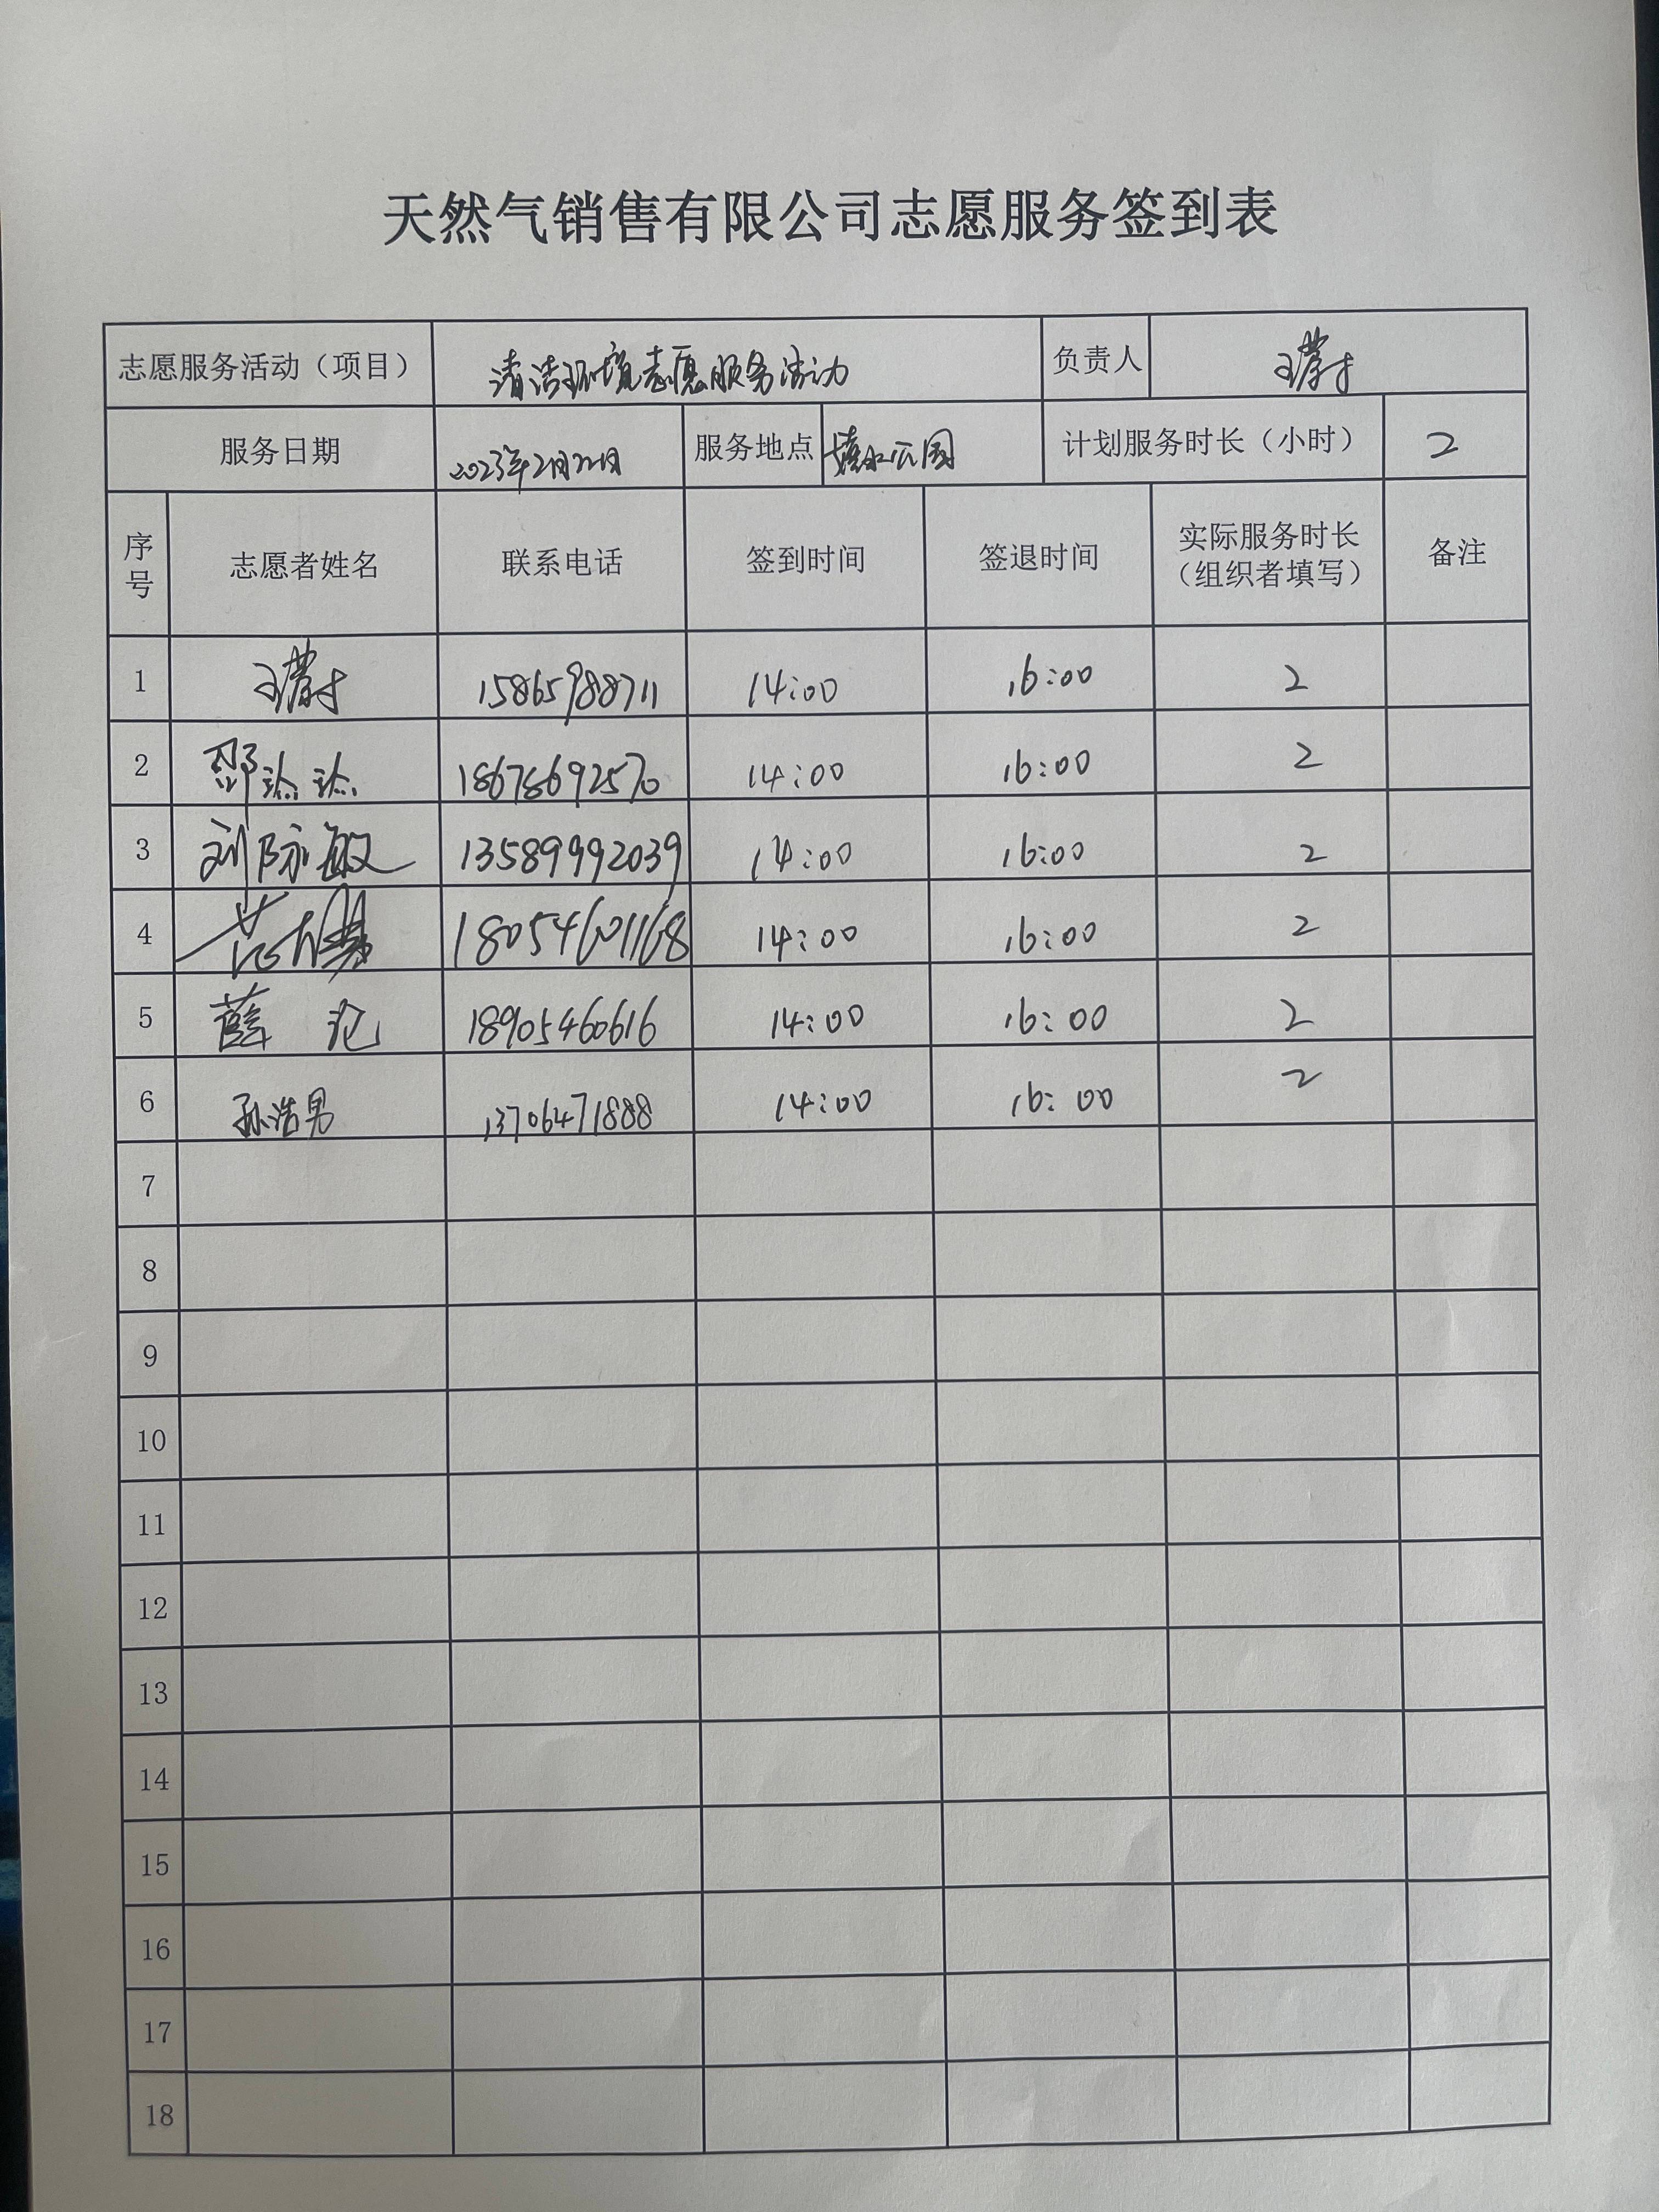 天然气销售有限公司志愿服务签到表
志愿服务活动（项目） 清洁环境志愿服务活动 负责人
服务日期 2023年2月22日 服务地点 公园 计划服务时长（小时） 2
序号 志愿者姓名 联系电话 签到时间 签退时间 实际服务时长（组织者填写） 备注
1 15865988711 14:00 16:00 2
2 18678692570 14:00 16:00 2
3 刘际敏 13589992039 14:00 16:00 2
4 18054601168 14:00 16:00 2
5 薛 沦 18905460616 14:00 16:00 2
6 孙浩男 13706471888 14:00 16:00 2
7
8
9
10
11
12
13
14
15
16
17
18